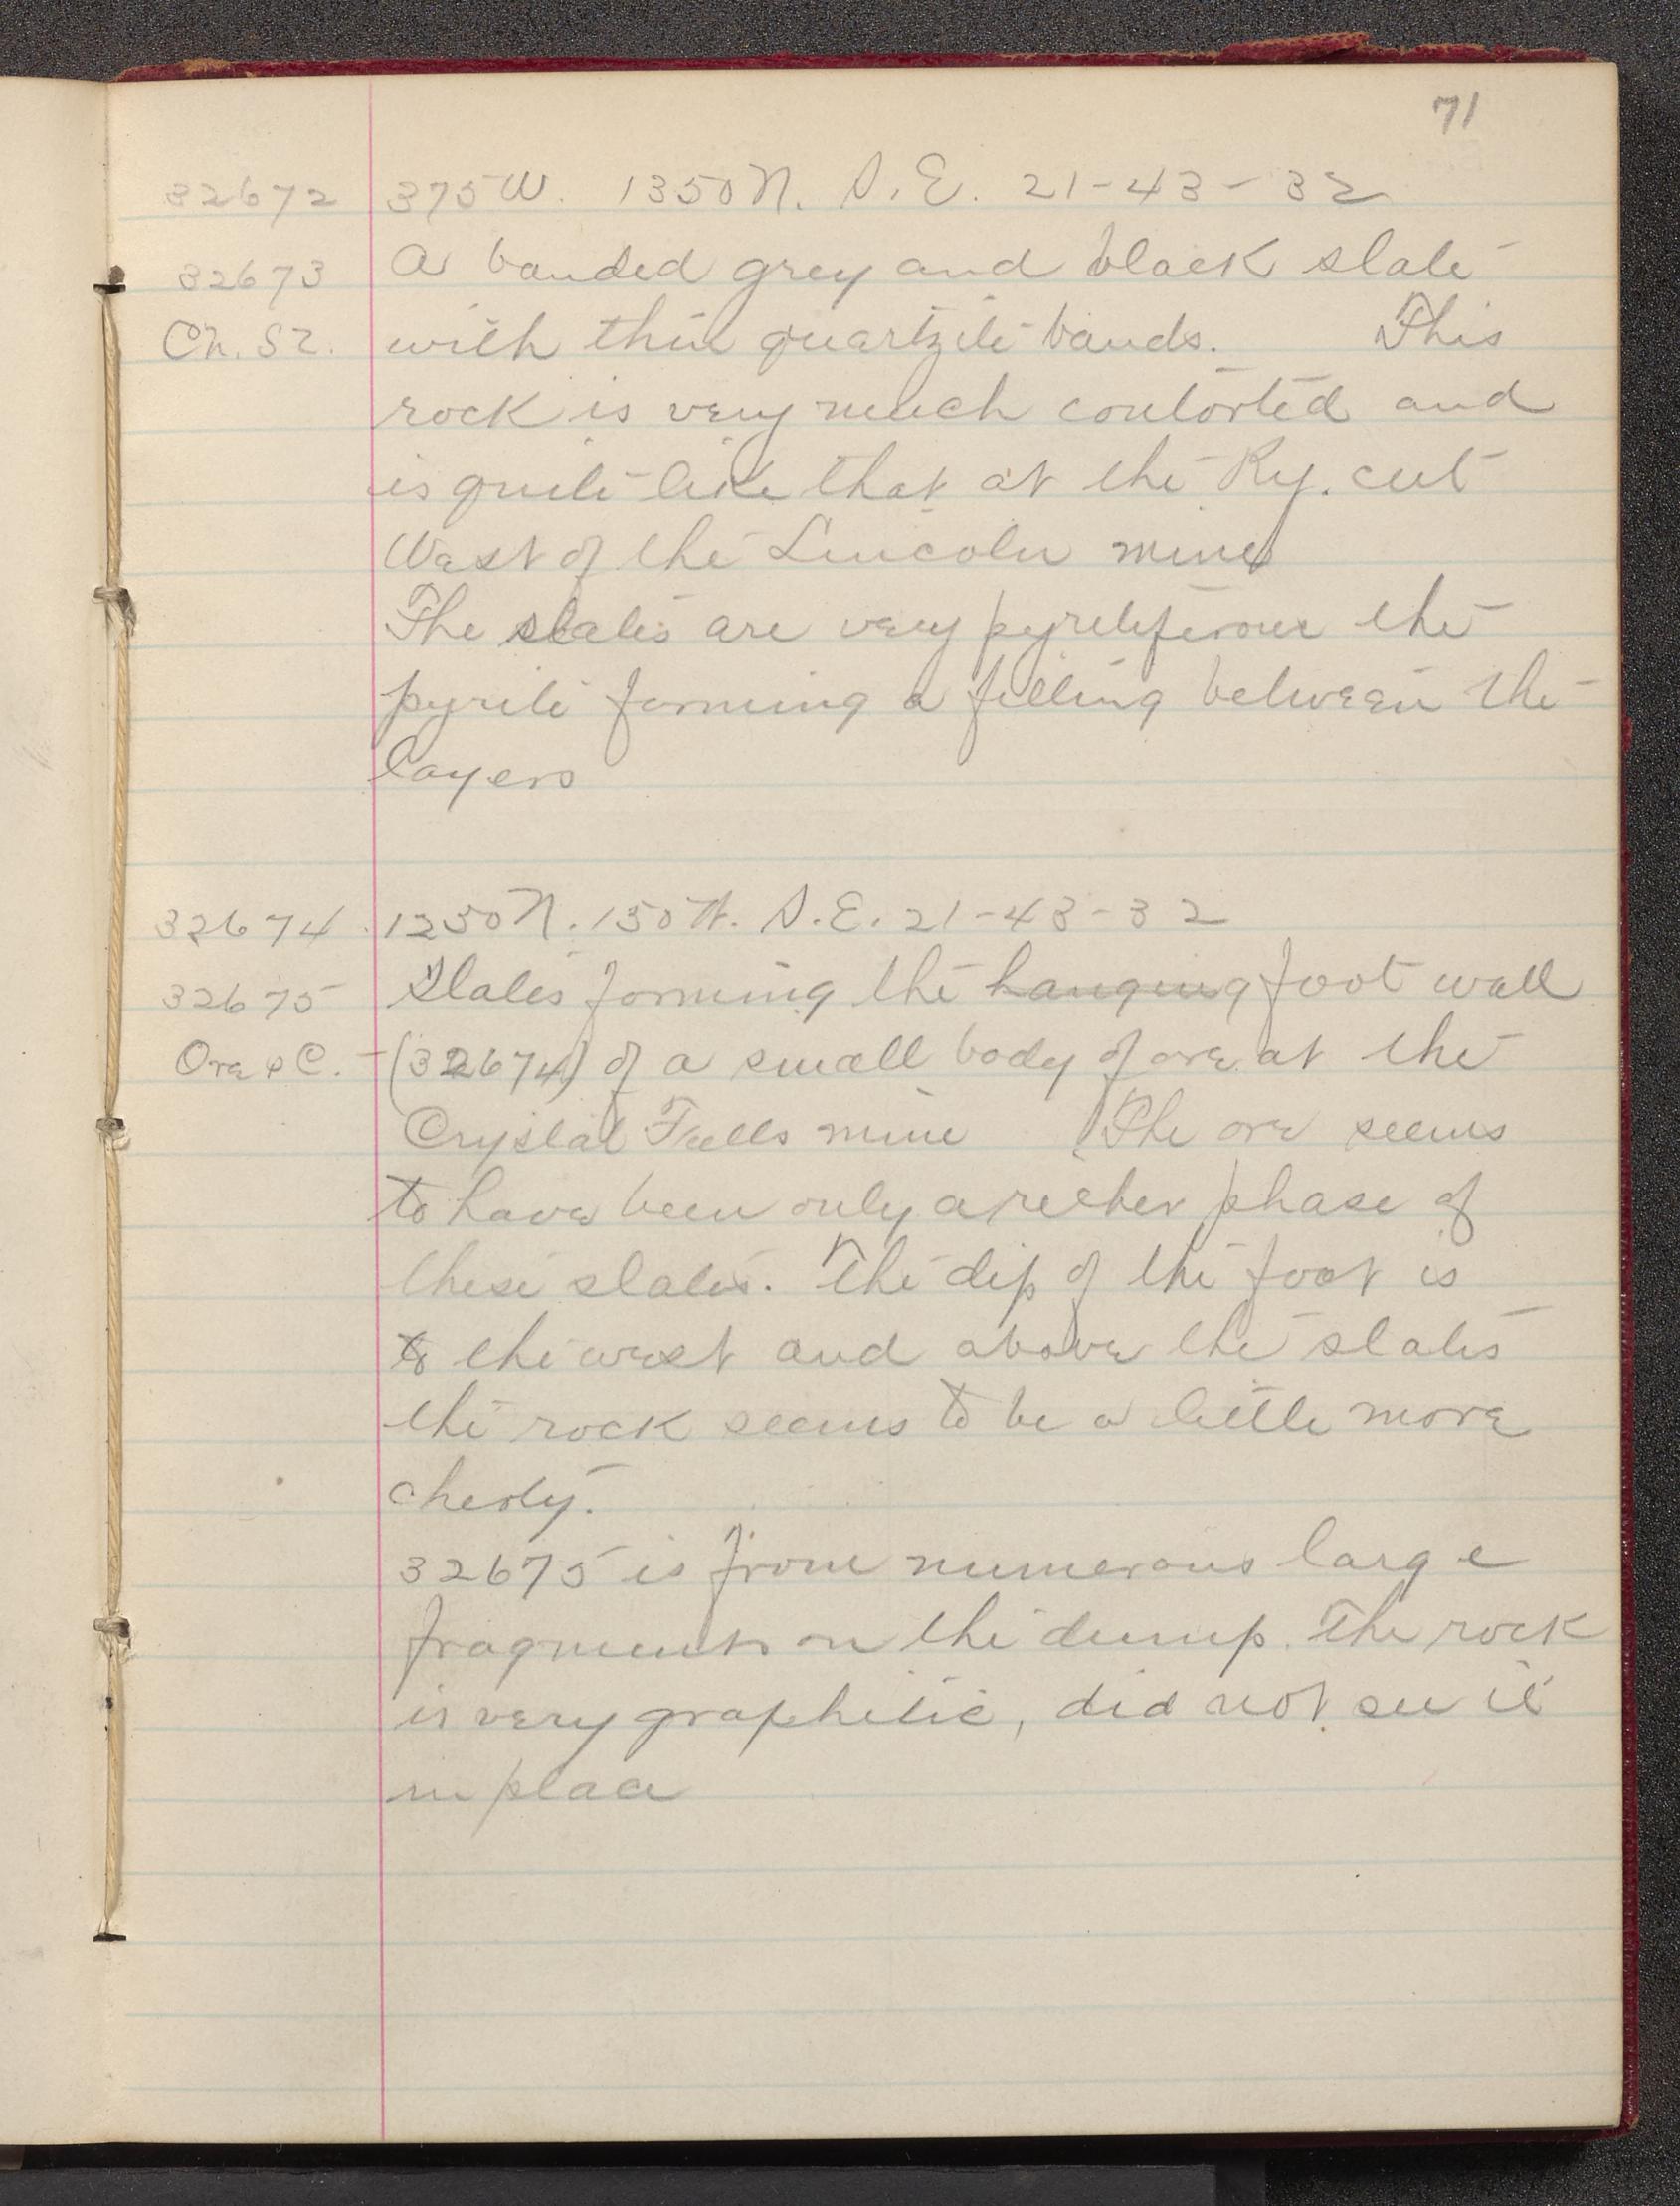 71
32672 375 W. 1350 N. S.E. 21-43-32
32673 A banded grey and black slate
with thin quartzite bands. This
rock is very much contorted and
is quite like that at the Ry. cut
West of the Lincoln mine
The slates are very pyritiferous the
pyrite forming a filling between the
layers
32674 1250 N. 150 W. S.E. 21-43-32
32675 Slates forming the hanging foot wall
(32674) of a small body of ore at the
Crystal Falls mine The ore seems
to have been only a richer phase of
these slates. The dip of the foot is
to the west and above the slates
the rock seems to be a little more
cherty.
32675 is from numerous large
fragments on the dump. The rock
is very graphitic, did not see it
in place